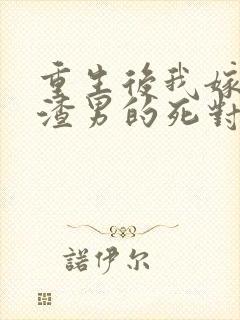 重生後我嫁
渣男的死對
諾伊尔